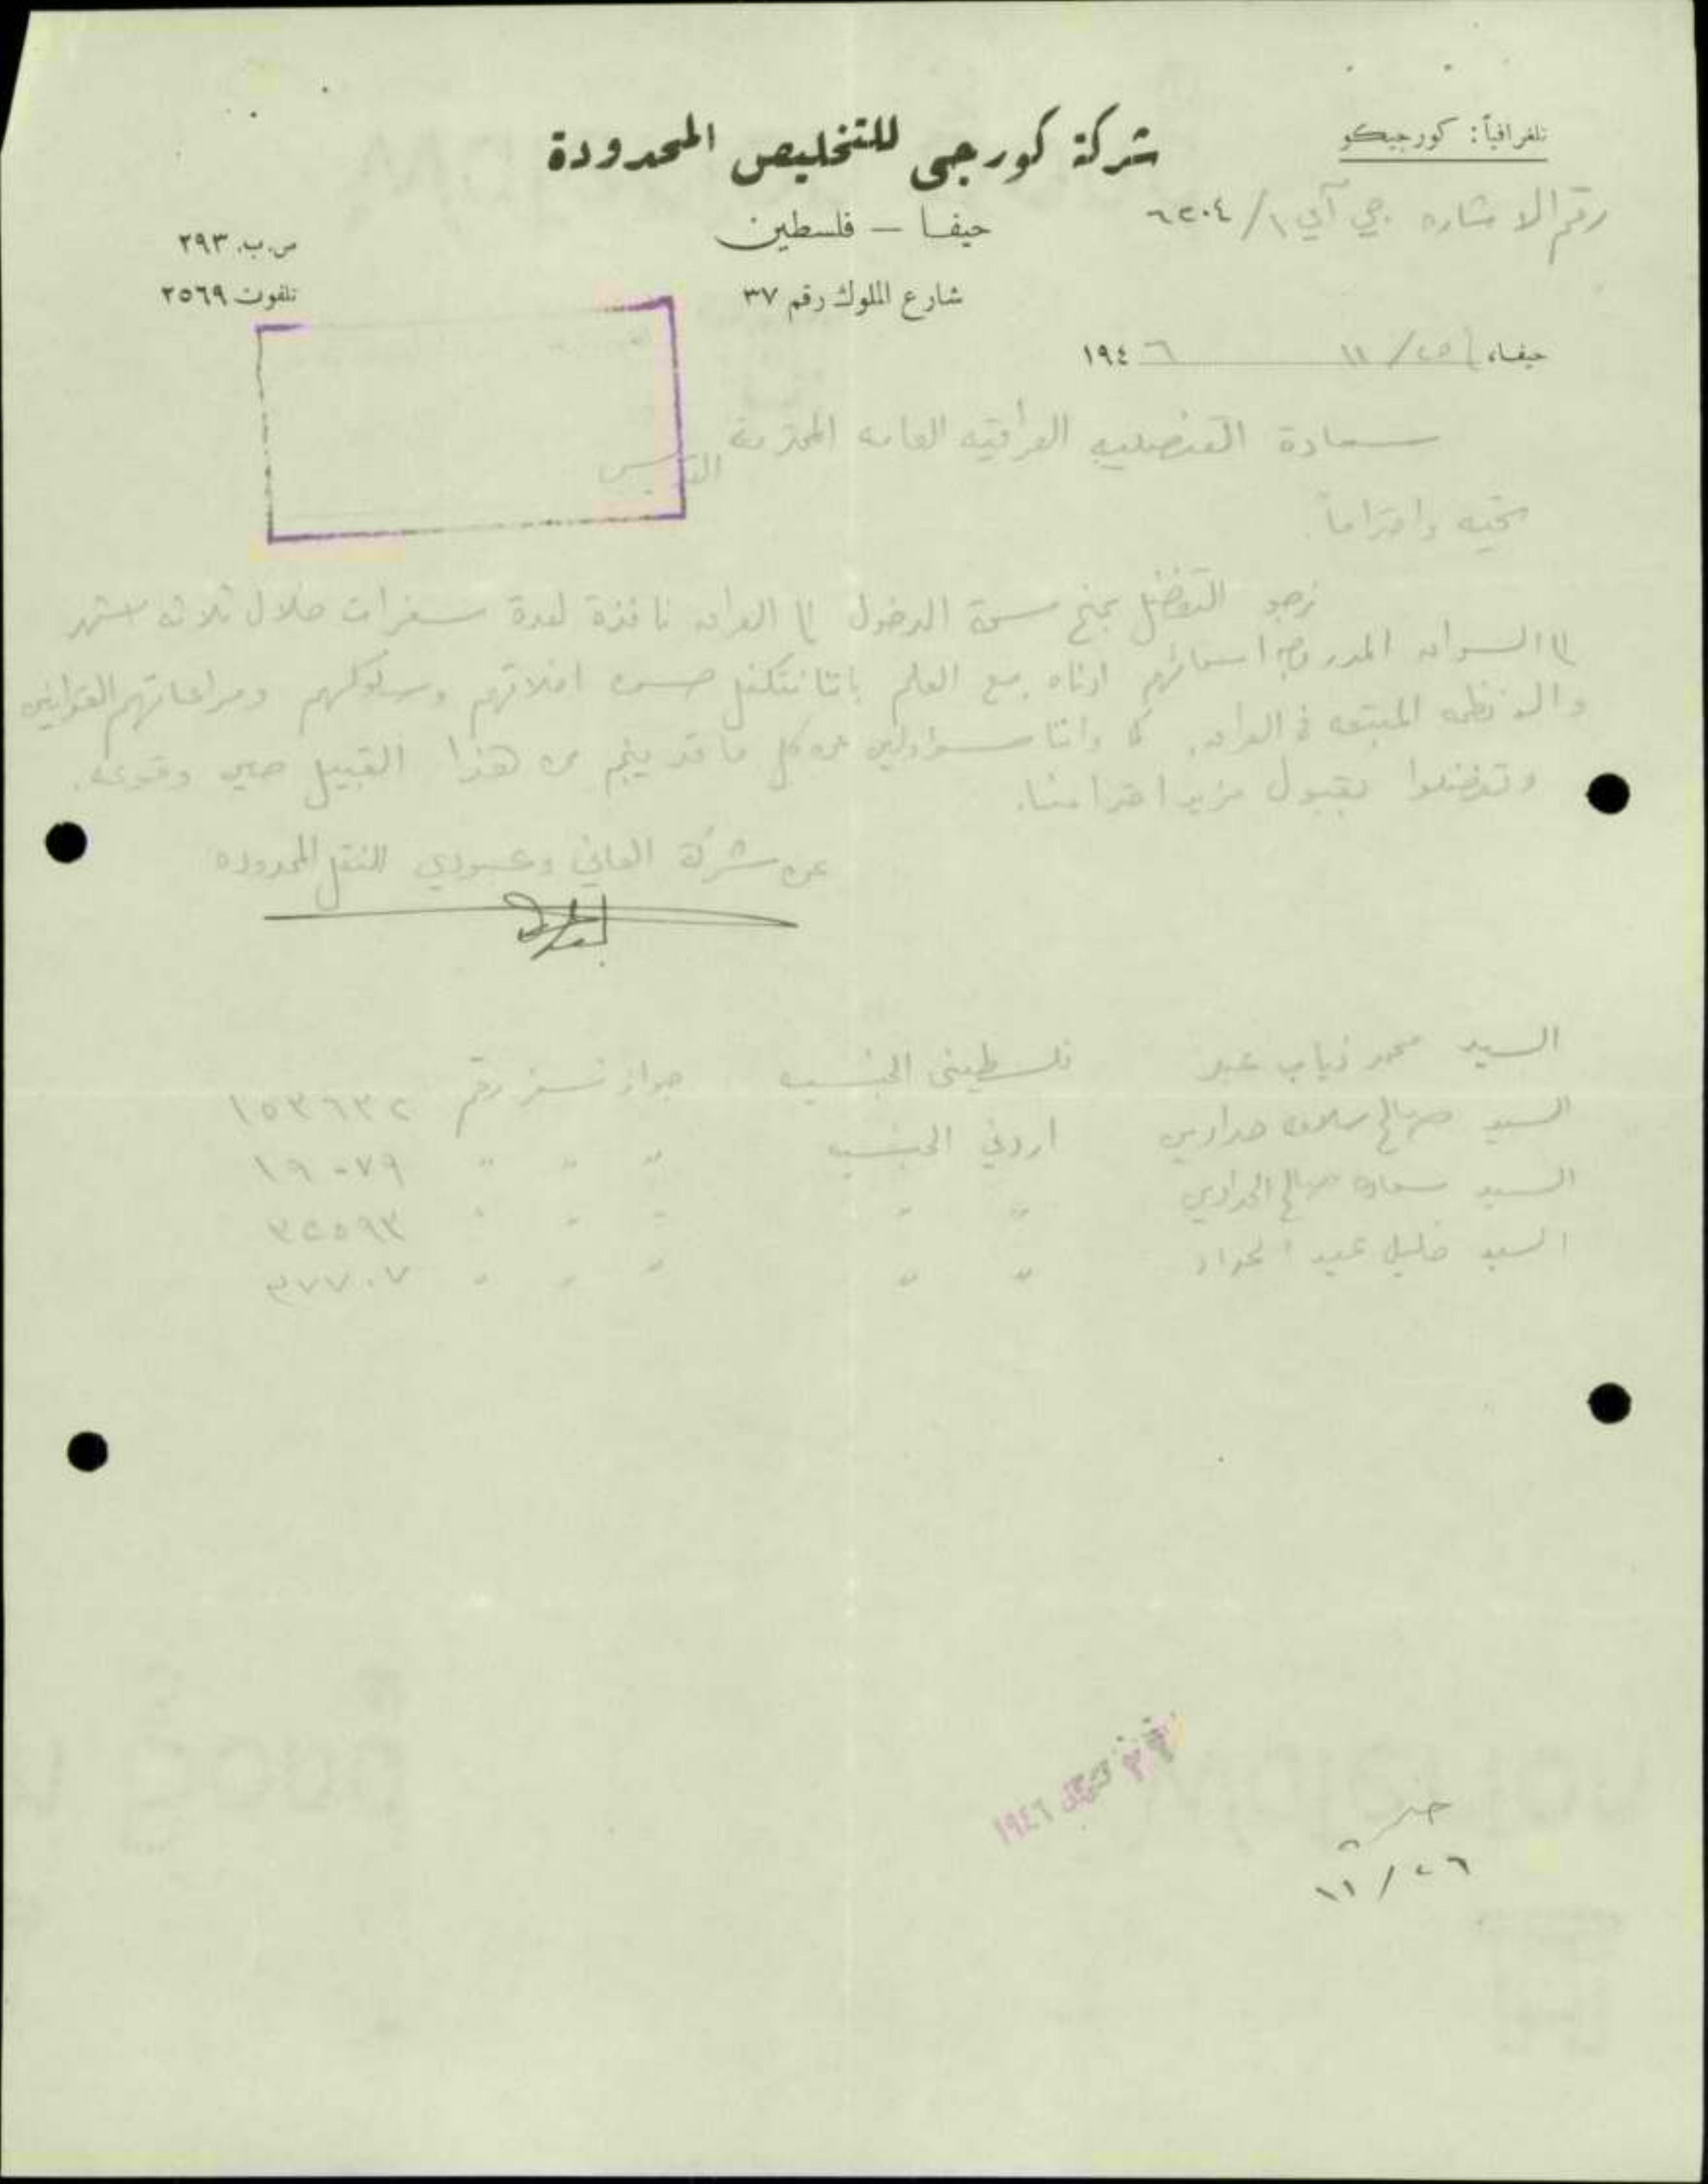 تلغرافياً: كورجيكو
شركة كورجي للتخليص المحدودة
رقم الاشاره جي آي ١/٦٢٠٤
حيفا — فلسطين
ص.ب. ٢٩٣
شارع الملوك رقم ٣٧
تلفون ٢٥٦٩
حيفا، ٢٥/١١ ١٩٤٦
سعادة القنصليه العراقيه العامه المحترمة
القدس
تحيه واحتراماً.
نرجو التفضل بمنح سمة الدخول الى العراق نافذة لعدة سفرات خلال ثلاثة اشهر
الى السواق المدرجة اسمائهم ادناه مع العلم باننا نتكفل حسن اخلاقهم وسلوكهم ومراعاتهم القوانين
والانظمه المتبعه في العراق. كما واننا مسؤولين عن كل ما قد ينجم من هذا القبيل حين وقوعه.
وتفضلوا بقبول مزيد احترامنا.
عن شركة العاني وعبودي للنقل المحدوده
السيد محمد ذياب عبد فلسطيني الجنسيه جواز سفر رقم ١٥٣٦٣٢
السيد صالح سلامه حدادين اردني الجنسيه " " " ١٩٠٧٩
السيد سعاده صالح الحدادين " " " " " ٣٢٥٩٣
السيد خليل عيد الحداد " " " " " ٣٧٧٠٧
١٩٤٦
٢٦/١١